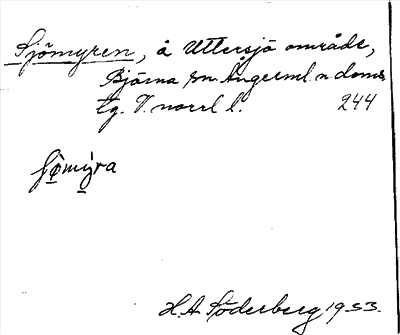 Sjömyren, å Uttersjö område,
Bjärna sn Ångerml. n. doms.
lg. V. norrl l. 244
sjömyra
H. A. Söderberg 1953.